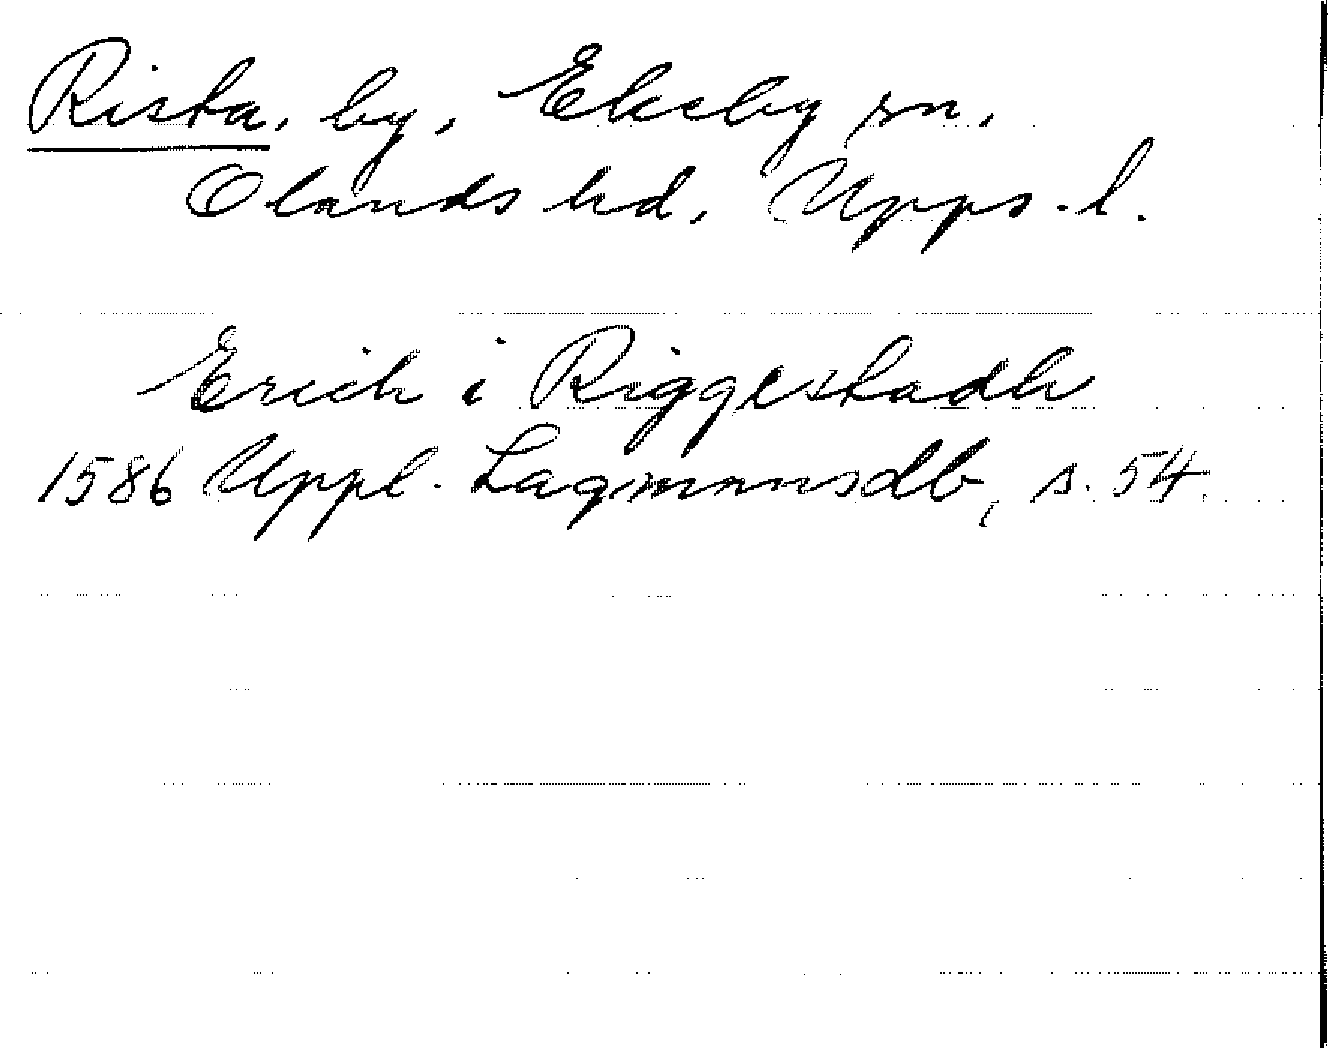 Rista, by, Ekeby sn.
Olands hd, Upps. l.
Erich i Riggestadh
1586 Uppl. Lagmansdb, s. 54.